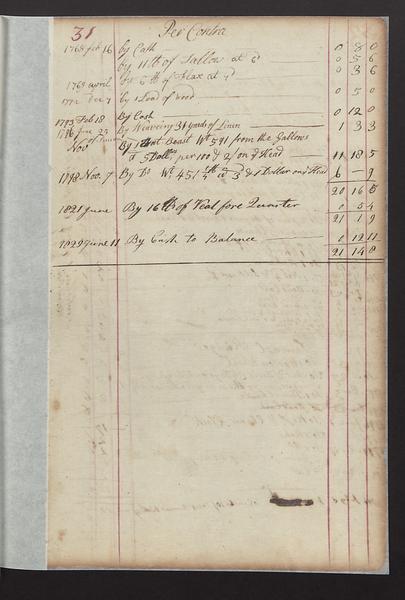 31 Per Contra
1768 feb 16 by Cash 0 8 0
by 11 lb of Tallow at 6d 0 5 6
1769 april by 6 lb of flax at 7d 0 3 6
1772 Dec 7 by 1 Load of wood 0 5 0
1773 Feb 18 By Cash 0 12 0
1786 June 29 By Weaveing 31 yards of Linen 1 3 3
Nov By 1 Beast Wt 591 from the Gallows
5 Dollars per 100 & 2/ on ye Head 11 18 5
1798 Nov. 7 By Do Wt 451 & 1 Dollar on ye Head 6 — 9
20 16 5
1821 June By 16 lb of Veal fore Quarter 0 5 4
21 1 9
1829 June 11 By Cash to Balance 0 12 11
21 14 8